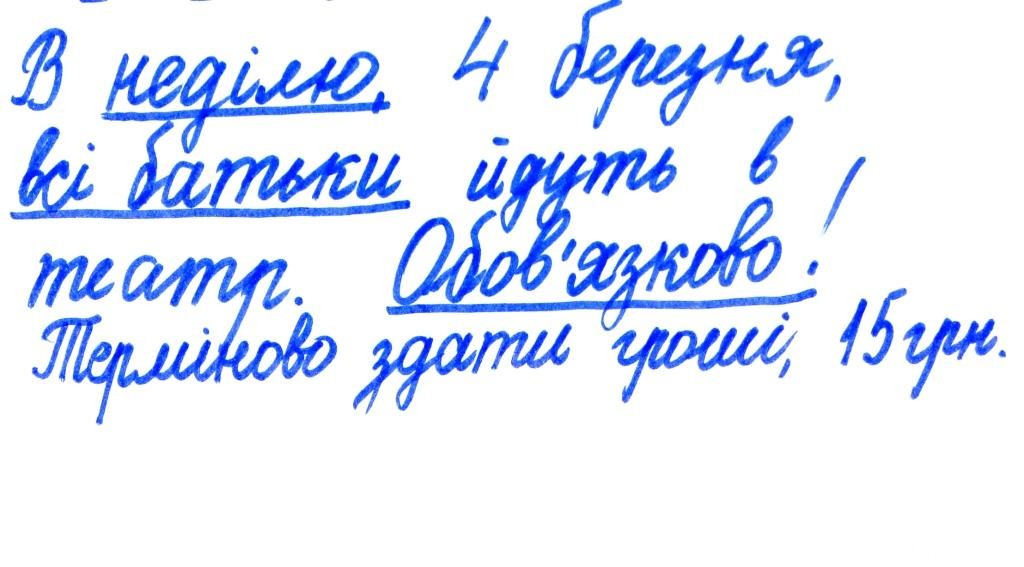 В неділю, 4 березня,
всі батьки йдуть в
театр. Обов'язково!
Терміново здати гроші, 15 грн.